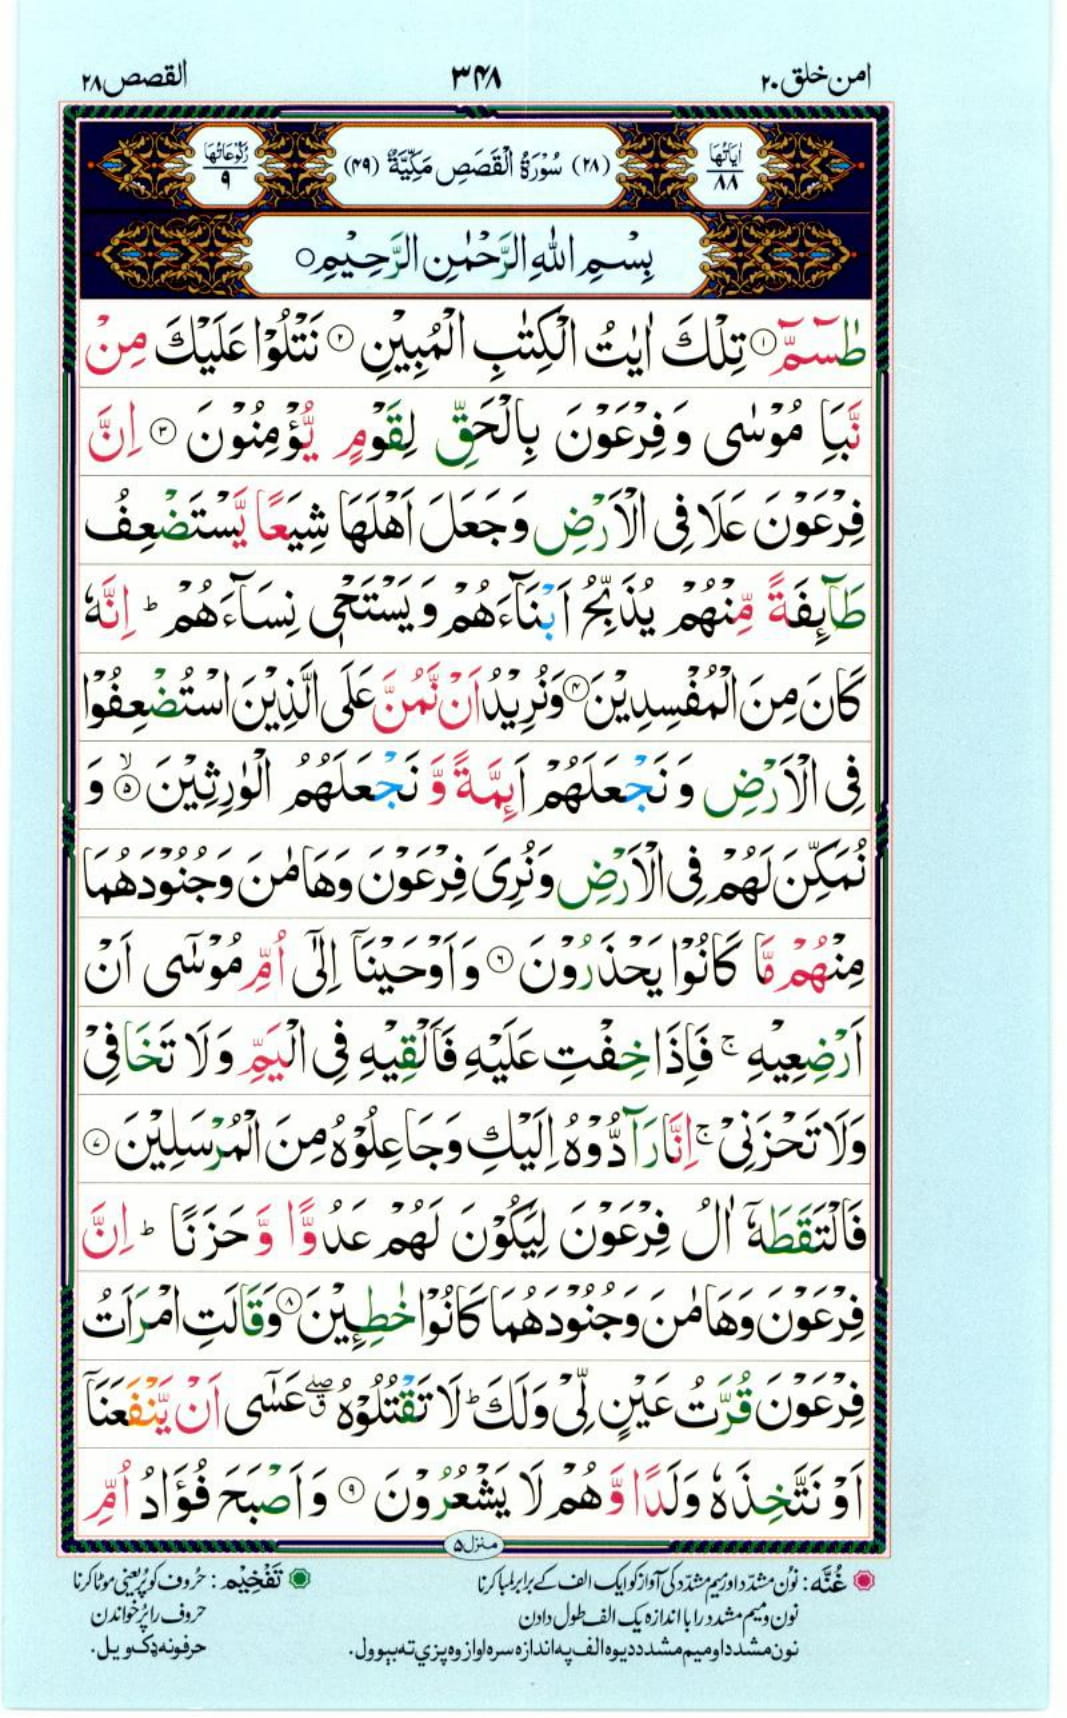 امن خلق ۲۰
۳۴۸
القصص ۲۸
اٰیَاتُهَا ۸۸
(۲۸) سُوْرَةُ الْقَصَصِ مَكِّيَّةٌ (۴۹)
رُكُوْعَاتُهَا ۹
بِسْمِ اللّٰهِ الرَّحْمٰنِ الرَّحِيْمِ ۝
طٰسٓمّٓ ۝۱ تِلْكَ اٰيٰتُ الْكِتٰبِ الْمُبِيْنِ ۝۲ نَتْلُوْا عَلَيْكَ مِنْ
نَّبَاِ مُوْسٰى وَفِرْعَوْنَ بِالْحَقِّ لِقَوْمٍ يُّؤْمِنُوْنَ ۝۳ اِنَّ
فِرْعَوْنَ عَلَا فِى الْاَرْضِ وَجَعَلَ اَهْلَهَا شِيَعًا يَّسْتَضْعِفُ
طَآئِفَةً مِّنْهُمْ يُذَبِّحُ اَبْنَآءَهُمْ وَيَسْتَحْىٖ نِسَآءَهُمْ ؕ اِنَّهٗ
كَانَ مِنَ الْمُفْسِدِيْنَ ۝۴ وَنُرِيْدُ اَنْ نَّمُنَّ عَلَى الَّذِيْنَ اسْتُضْعِفُوْا
فِى الْاَرْضِ وَنَجْعَلَهُمْ اَئِمَّةً وَّنَجْعَلَهُمُ الْوٰرِثِيْنَ ۝۵ ۙ وَ
نُمَكِّنَ لَهُمْ فِى الْاَرْضِ وَنُرِىَ فِرْعَوْنَ وَهَامٰنَ وَجُنُوْدَهُمَا
مِنْهُمْ مَّا كَانُوْا يَحْذَرُوْنَ ۝۶ وَاَوْحَيْنَآ اِلٰٓى اُمِّ مُوْسٰٓى اَنْ
اَرْضِعِيْهِ ۚ فَاِذَا خِفْتِ عَلَيْهِ فَاَلْقِيْهِ فِى الْيَمِّ وَلَا تَخَافِىْ
وَلَا تَحْزَنِىْ ۚ اِنَّا رَآدُّوْهُ اِلَيْكِ وَجَاعِلُوْهُ مِنَ الْمُرْسَلِيْنَ ۝۷
فَالْتَقَطَهٗٓ اٰلُ فِرْعَوْنَ لِيَكُوْنَ لَهُمْ عَدُوًّا وَّحَزَنًا ؕ اِنَّ
فِرْعَوْنَ وَهَامٰنَ وَجُنُوْدَهُمَا كَانُوْا خٰطِئِيْنَ ۝۸ وَقَالَتِ امْرَاَتُ
فِرْعَوْنَ قُرَّتُ عَيْنٍ لِّىْ وَلَكَ ؕ لَا تَقْتُلُوْهُ ۖق عَسٰٓى اَنْ يَّنْفَعَنَآ
اَوْ نَتَّخِذَهٗ وَلَدًا وَّهُمْ لَا يَشْعُرُوْنَ ۝۹ وَاَصْبَحَ فُؤَادُ اُمِّ
منزل ۵
غُنَّه: نوُن مشدّد اور میم مشدّد کی آواز کو ایک الف کے برابر لمبا کرنا
نون و میم مشدد را با اندازه یک الف طول دادن
نون مشدد او میم مشدد د یوه الف په اندازه سره اواز وه پزې ته بېوول.
تَفْخِیْم: حرُوف کو پُر یعنی موٹا کرنا
حروف را پُر خواندن
حرفونه ډک ویل.